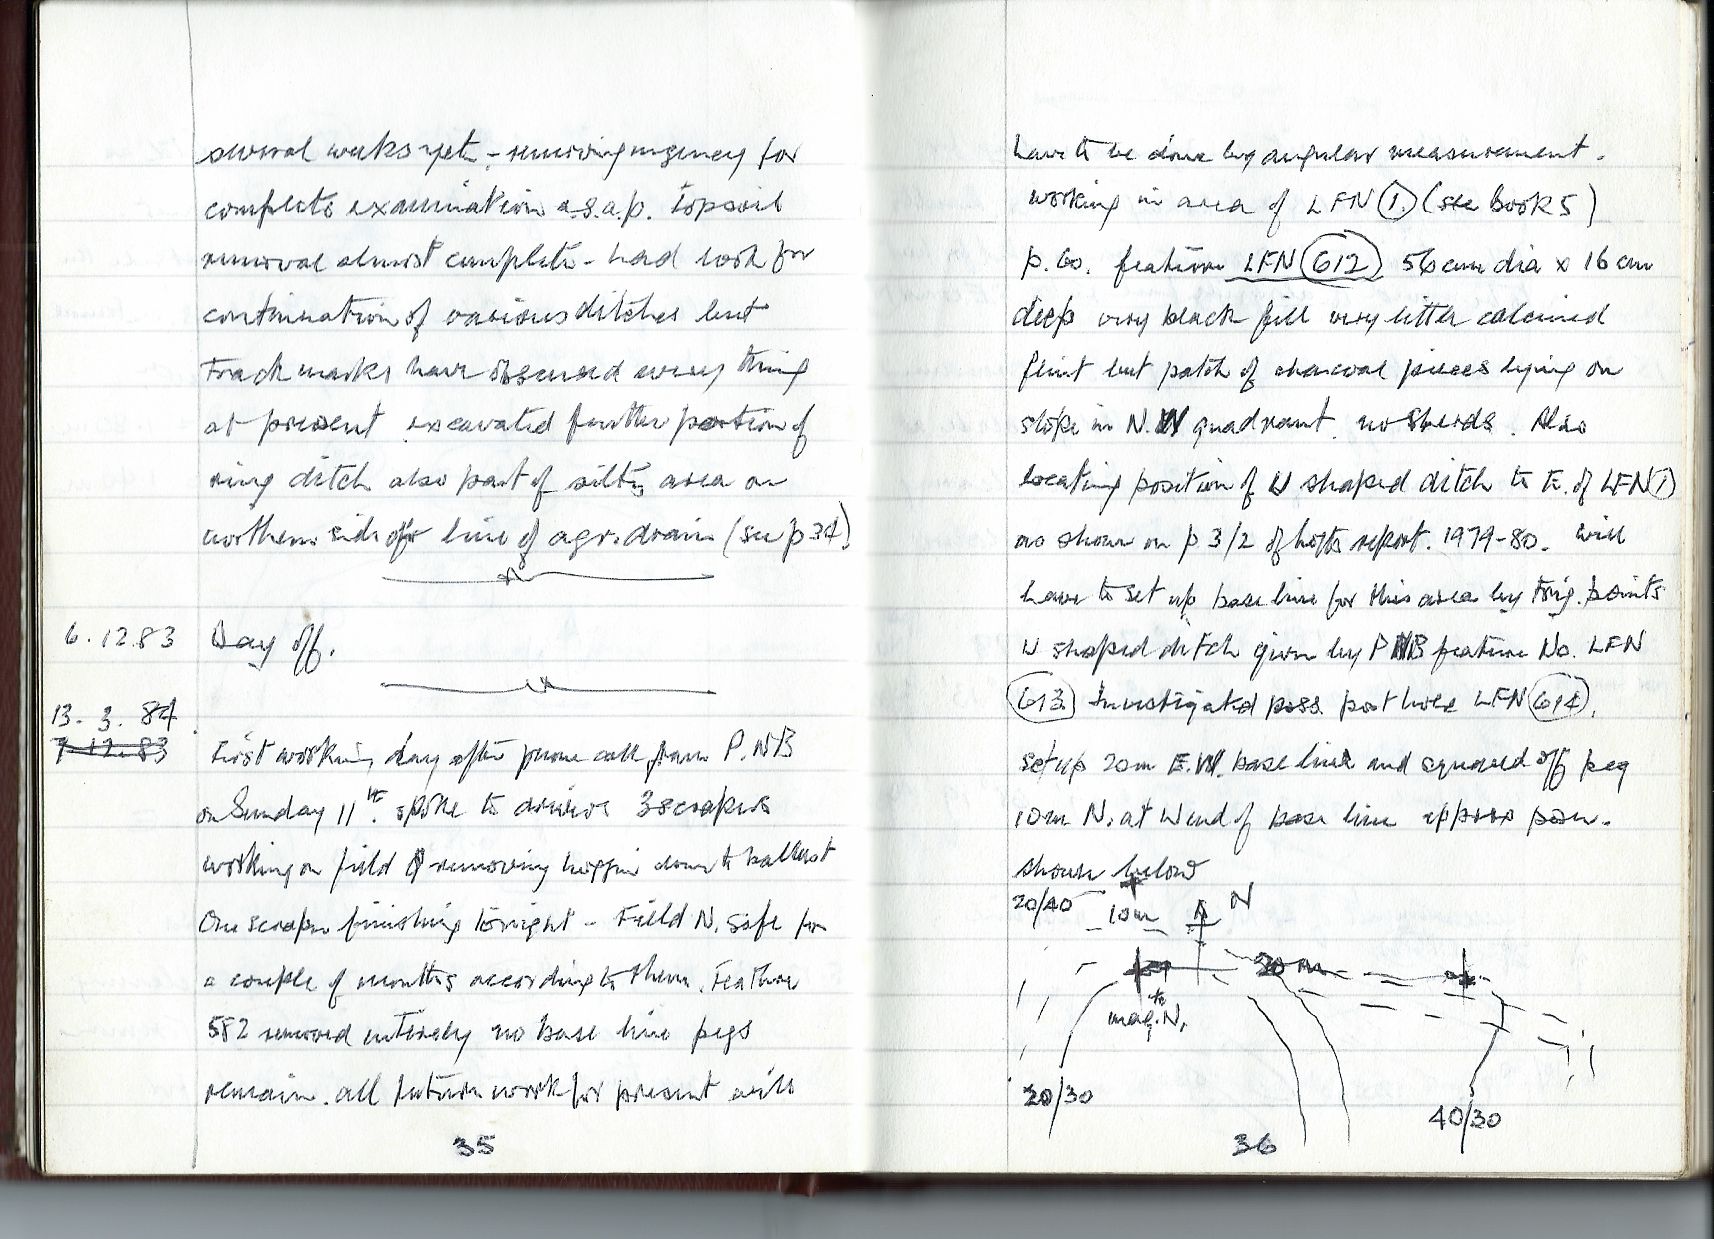 several weeks yet - removing urgency for
complete examination a.s.a.p. Topsoil
removal almost complete - had look for
continuation of various ditches but
Track marks have obscured every thing
at present excavated further portion of
ring ditch also part of silty area on
northern side of line of agr. drain (see p 34)
6.12.83 Day off.
13.3.84
7.12.83
First working day after phone call from P.NB
on Sunday 11th. spoke to drivers 3 scrapers
working on field removing hoggin down to ballast
One scraper finishing tonight - Field N. safe for
a couple of months according to them. Feature
582 removed entirely no base line pegs
remain. all future work for present will
35
have to be done by angular measurement.
working in area of LFN 1 (see Book 5)
p. 60. feature LFN 612 56cm dia x 16 cm
deep very black fill very little calcined
flint but patch of charcoal pieces lying on
slope in N.W quadrant. no sherds. Also
locating position of U shaped ditch to E. of LFN 1
as shown on p 3/2 of report. 1979-80. will
have to set up base line for this area by trig. points
U shaped ditch given by P NB feature No. LFN
613. Investigated poss. post hole LFN 614.
set up 20m E.W. base line and squared off peg
10m N. at W end of base line approx posn.
shown below
20/40
10m
N
20m
to
mag. N.
20/30
40/30
36